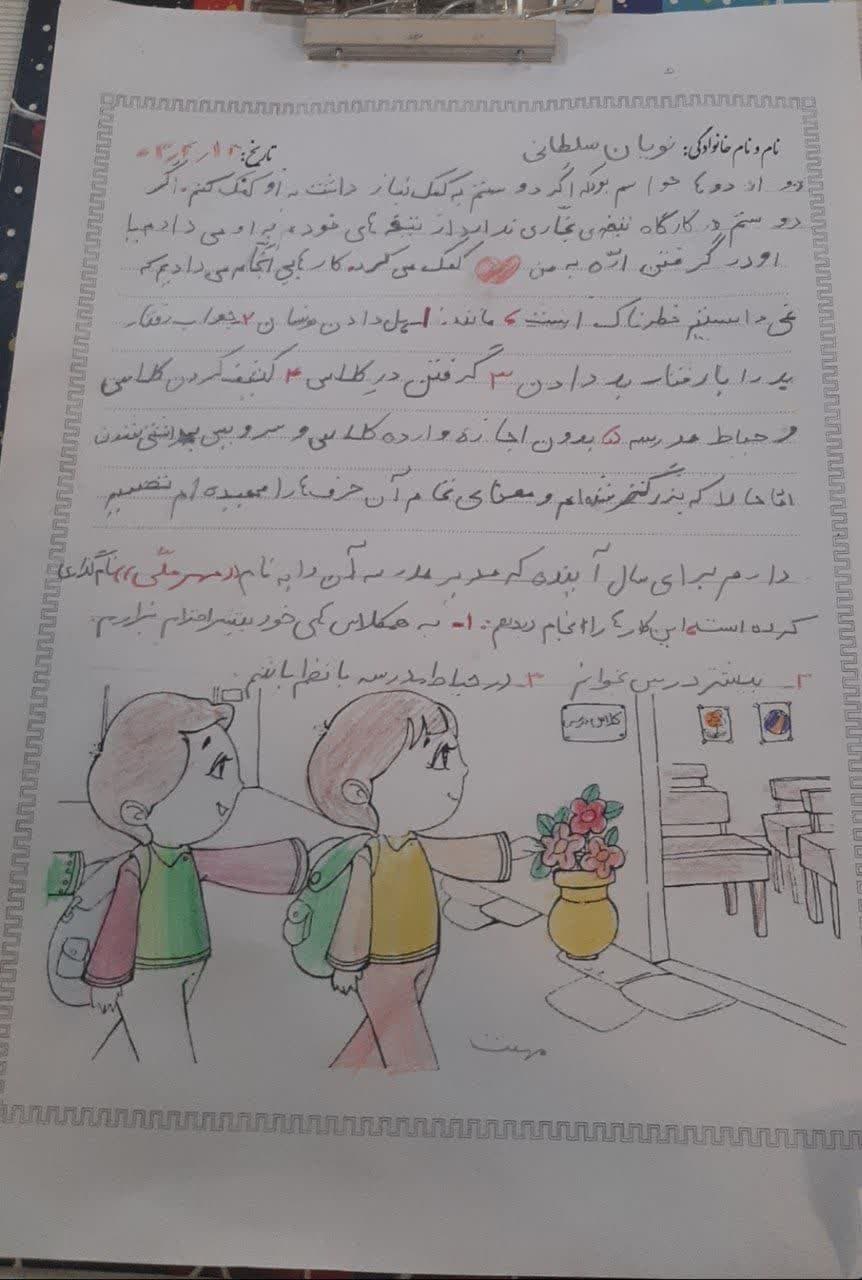 نام و نام خانوادگی: نویان سلطانی تاریخ:
و از دو حواسم بود که اگر دوستم به کمک نیاز داشت به او کمک کنم. اگر
دوستم در کارگاه نجّاری ندارد از های خودم به او می دادم یا
او در گرفتن ارّه به من کمک می کرد. کارهایی انجام می دادیم که
نمی دانستیم خطرناک است مانند: ۱- هل دادن دوستان ۲ جواب رفتار
بد را با رفتار بد دادن ۳ گرفتن درِ کلاس ۴ کثیف کردن کلاس
و حیاط مدرسه ۵ بدون اجازه وارده کلاس و سرویس بهداشتی شدن
امّا حالا که بزرگتر شده ام و معنای تمام آن حرف ها را فهمیده ام تصمیم
دارم برای سال آینده که مدیر مدرسه آن را به نام ((مهر ملّی)) نام گذاری
کرده است این کار ها را انجام دهم: ۱- به همکلاسی خود بیشتر احترام بزارم.
۲_ بیشتر درس بخوانم ۳_ در حیاط مدرسه با نظم باشم.
کلاس درس